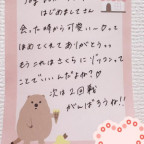 はじめましてさん
会った時から可愛いーって
ほめてくれてありがとう
もうこれはさくらにゾッコンって
ことでいいんだよね?♡
次は2回戦
がんばろうね!!